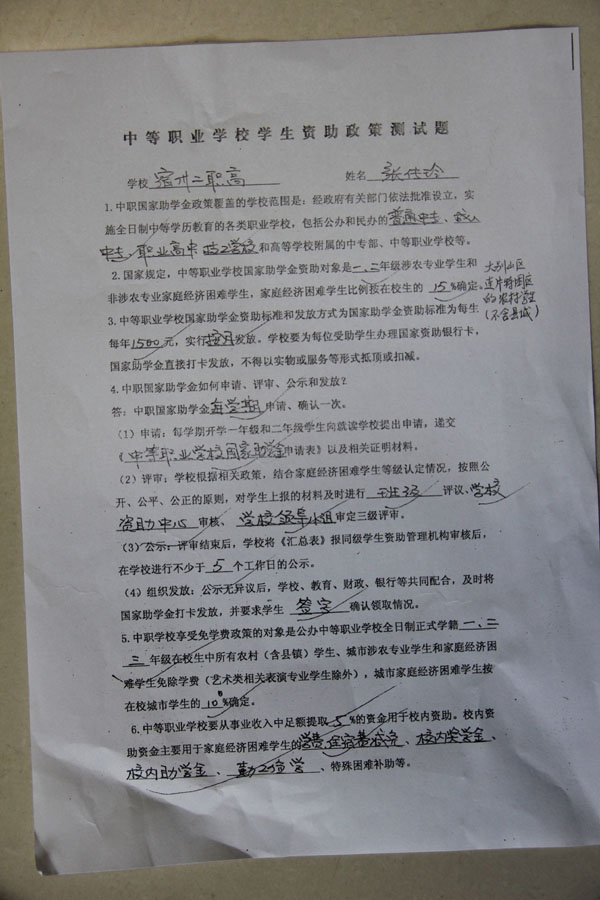 中等职业学校学生资助政策测试题
学校 宿州二职高 姓名 张传玲
1.中职国家助学金政策覆盖的学校范围是：经政府有关部门依法批准设立，实
施全日制中等学历教育的各类职业学校，包括公办和民办的普通中专、成人
中专、职业高中、技工学校和高等学校附属的中专部、中等职业学校等。
2.国家规定，中等职业学校国家助学金资助对象是一、二年级涉农专业学生和
非涉农专业家庭经济困难学生，家庭经济困难学生比例按在校生的 15%确定。
大别山区
连片特困区
的农村学生
(不含县城)
3.中等职业学校国家助学金资助标准和发放方式为国家助学金资助标准为每生
每年1500元，实行按月发放。学校要为每位受助学生办理国家资助银行卡，
国家助学金直接打卡发放，不得以实物或服务等形式抵顶或扣减。
4.中职国家助学金如何申请、评审、公示和发放？
答：中职国家助学金每学期申请、确认一次。
（1）申请：每学期开学一年级和二年级学生向就读学校提出申请，递交
《中等职业学校国家助学金申请表》以及相关证明材料。
（2）评审：学校根据相关政策，结合家庭经济困难学生等级认定情况，按照公
开、公平、公正的原则，对学生上报的材料及时进行 班级 评议、学校
资助中心 审核、学校领导小组审定三级评审。
（3）公示：评审结束后，学校将《汇总表》报同级学生资助管理机构审核后，
在学校进行不少于 5 个工作日的公示。
（4）组织发放：公示无异议后，学校、教育、财政、银行等共同配合，及时将
国家助学金打卡发放，并要求学生 签字 确认领取情况。
5.中职学校享受免学费政策的对象是公办中等职业学校全日制正式学籍一、二
三 年级在校生中所有农村（含县镇）学生、城市涉农专业学生和家庭经济困
难学生免除学费（艺术类相关表演专业学生除外），城市家庭经济困难学生按
在校城市学生的 10 %确定。
6.中等职业学校要从事业收入中足额提取 5 %的资金用于校内资助。校内资
助资金主要用于家庭经济困难学生的学费住宿费减免、校内奖学金、
校内助学金、勤工俭学、特殊困难补助等。